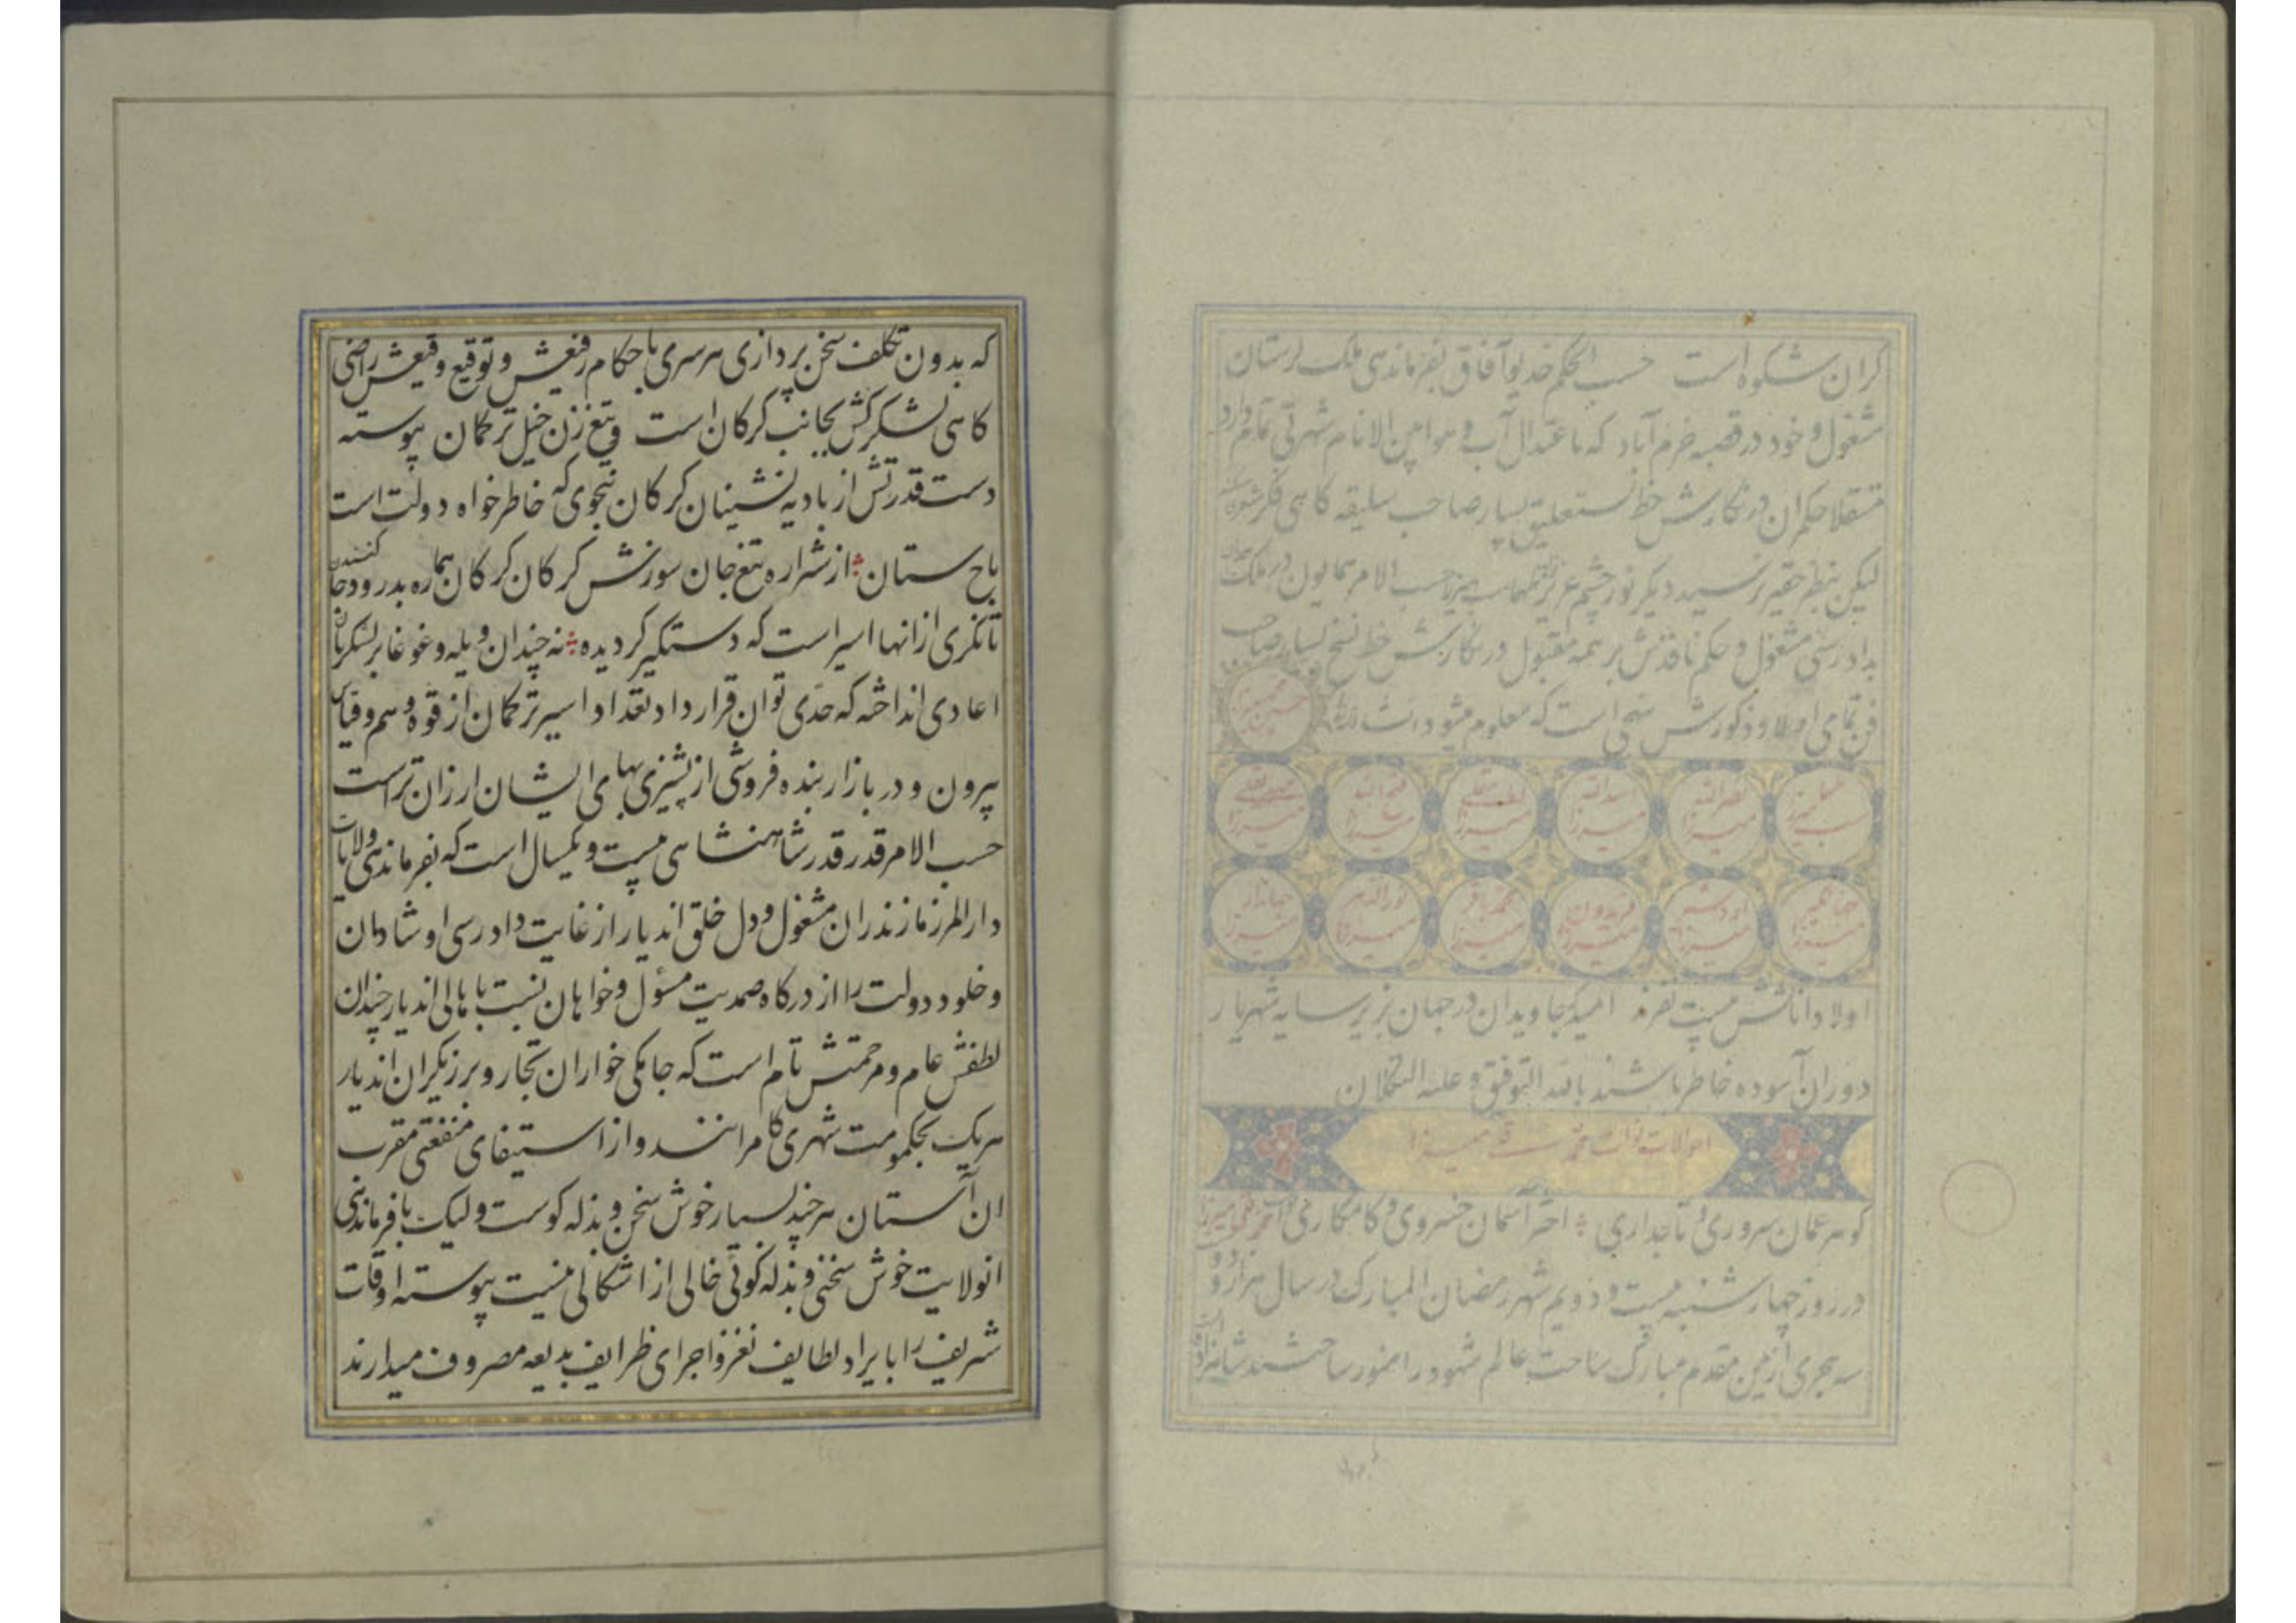 کران شکوه است حسب الحکم خدیو آفاق بفرماندهی ملک لرستان
مشغول و خود در قصبه خرم آباد که باعتدال آب و هوا بین الانام شهرتی تمام دارد
مستقلا حکمران در نکارش خط نستعلیق بسیار صاحب سلیقه کاهی فکر شعری
لیکن بنظر حقیر نرسید دیکر نور چشم عزیز حسب الامر همایون در ملک
بدادرسی مشغول و حکم نافذش بر همه مقبول در نکارش خط نسخ بسیار صاحب
فن تمامی اولاد ذکورش است که معلوم میشود
حسین میرزا
نصرالله میرزا
اسدالله میرزا
لطفعلی میرزا
فتح الله میرزا
میرزا
جهانکیر میرزا
اردشیر میرزا
فریدون میرزا
محمد باقر میرزا
نورالدهر میرزا
جهاندار میرزا
اولاد اناثش بیست نفرند امید که جاویدان در جهان بزیر سایه شهریار
دوران آسوده خاطر باشند بالله التوفیق و علیه التکلان
احوالات نواب محمد قلی میرزا
کوهر عمان سروری و تاجداری اختر آسمان خسروی و کامکاری نواب محمد قلی میرزا
در روز چهار شنبه بیست و دویم شهر رمضان المبارک در سال هزار و دو
سه هجری از یمن مقدم مبارک ساحت عالم شهود را منور ساختند شاهزاده است
که بدون
که بدون تکلف سخن پردازی سرسری باحکام رفیعش و توقیع وقیعش راضی
کاهی لشکر کش بجانب کرکان است و تیغ زن خیل ترکمان پیوسته
دست قدرتش از بادیه نشینان کرکان بنحوی که خاطرخواه دولت است
باج ستان از شراره تیغ جان سوزش کرکان کرکان هماره بدرود جان کنندن
تانکری از انها اسیر است که دستکیر کردیده نه چندان ویله و غوغا بر لشکریان
اعادی انداخته که حدی توان قرار داد تعداد اسیر ترکمان از قوه وهم و قیاس
بیرون و در بازار بنده فروشی از پشیزی بهای ایشان ارزان تر است
حسب الامر قدر قدر شاهنشاهی بیست و یکسال است که بفرماندهی ولایات
دارالمرز مازندران مشغول و دل خلق اندیار از غایت دادرسی او شادمان
و خلود دولت را از درکاه صمدیت مسئول و خواهان نسبت باهالی اندیار چندان
لطفش عام و مرحمتش تام است که جامکی خواران تجار و برزیکران اندیار
هریک بحکومت شهری کامرانند و از استیفای منفعتی مقرب
ان آستان هرچند بسیار خوش سخن و بذله کوست و لیک با فرماندهی
انولایت خوش سخنی و بذله کوئی خالی از اشکالی نیست پیوسته اوقات
شریف را بایراد لطایف نغز و اجرای ظرایف بدیعه مصروف میدارند